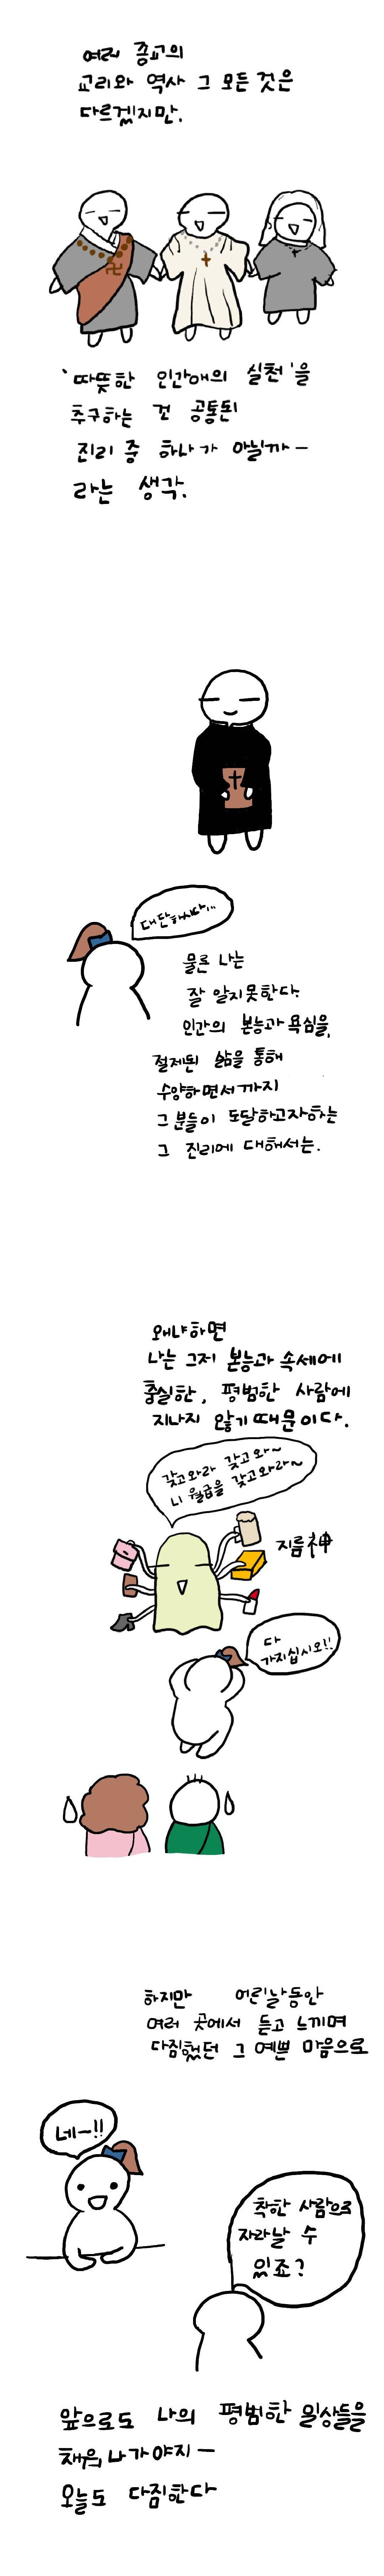 여러 종교의
교리와 역사 그 모든 것은
다르겠지만.
'따뜻한 인간애의 실천'을
추구하는 건 공통된
진리 중 하나가 아닐까ㅡ
라는 생각.
대단하시다...
물론 나는
잘 알지 못한다.
인간의 본능과 욕심을,
절제된 삶을 통해
수양하면서까지
그분들이 도달하고자하는
그 진리에 대해서는.
왜냐하면
나는 그저 본능과 속세에
충실한, 평범한 사람에
지나지 않기 때문이다.
갖고와라 갖고와~
니 월급을 갖고와라~
지름神
다
가지십시오!!
하지만 어린날동안
여러 곳에서 듣고 느끼며
다짐했던 그 예쁜 마음으로
네ㅡ!!
착한 사람으로
자라날 수
있죠?
앞으로도 나의 평범한 일상들을
채워나가야지ㅡ
오늘도 다짐한다